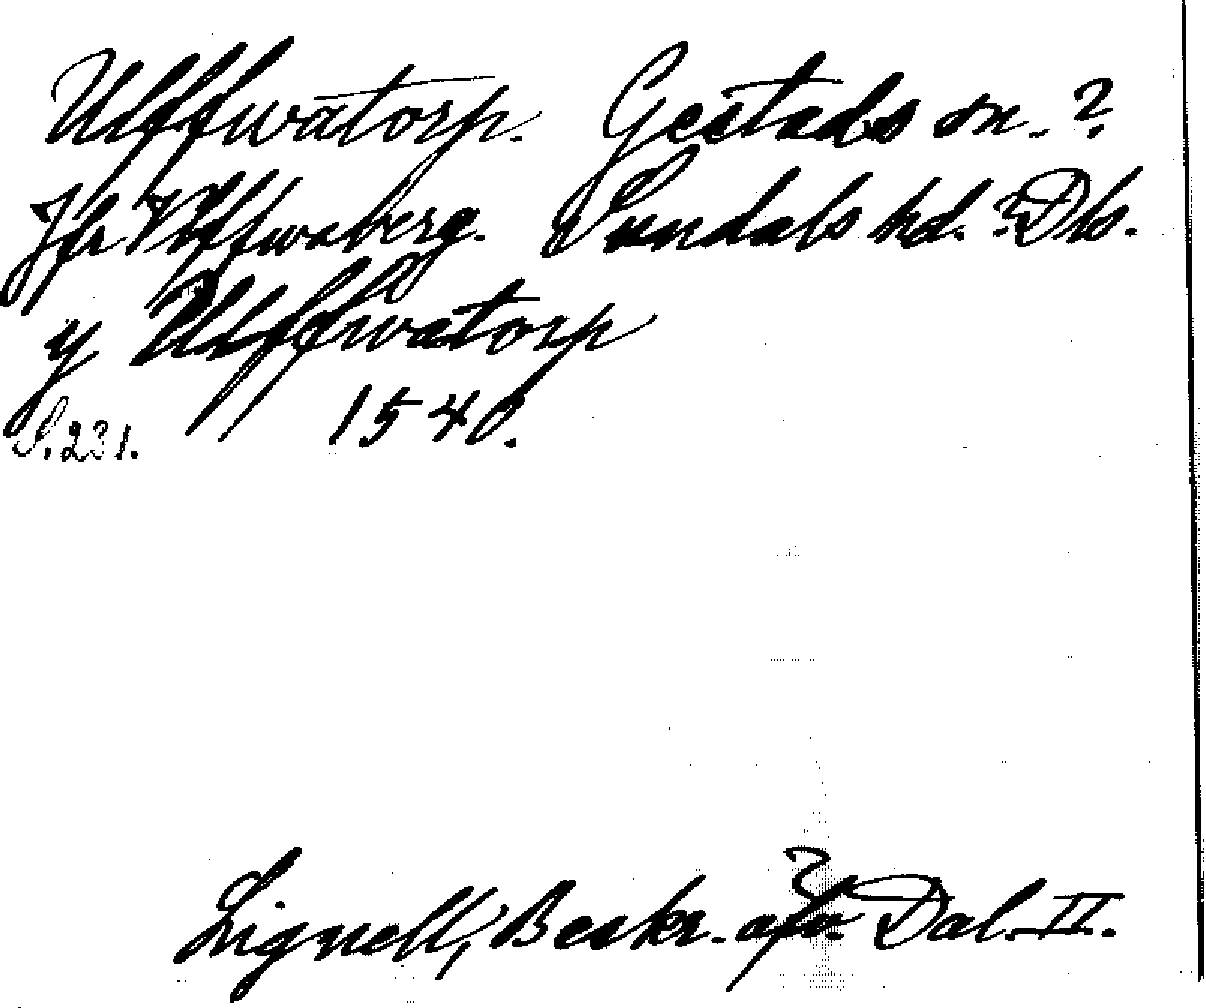 Ulffwatorp. Gestads sn. ?
Jfr Ulffwaberg. Sundals hd. ? Dls.
y Ulffwatorp
S. 231. 1540.
Lignell, Beskr. öfv. Dal. II.